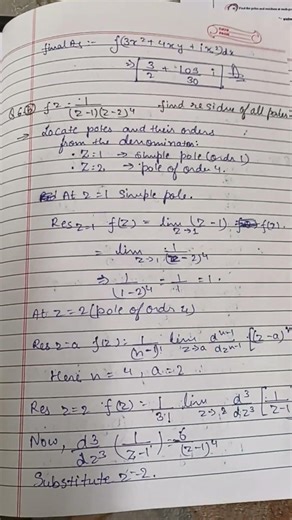 final Ans :- ∫(3x² + 4xy + ix²)dz
⇒ [3/2 + 103/30 i]
Q6(b) fz = 1/((z-1)(z-2)⁴) find residue of all poles =
→ Locate poles and their orders
from the denominator:
• z=1 → simple pole (order 1)
• z=2 → pole of order 4.
At z=1 Simple pole.
Res z=1 f(z) = lim z→1 (z-1) f(z).
= lim z→1 1/(z-2)⁴
⇒ 1/(1-2)⁴ = 1/1 = 1.
At z=2 (pole of order 4)
Res z=a f(z) = 1/(n-1)! lim z→a d^(n-1)/dz^(n-1) [(z-a)^n
Here n=4, a=2
Res z=2 f(z) = 1/3! lim z→2 d³/dz³ [1/(z-1)
Now, d³/dz³ (1/(z-1)) = 6/(z-1)⁴
Substitute z=2.